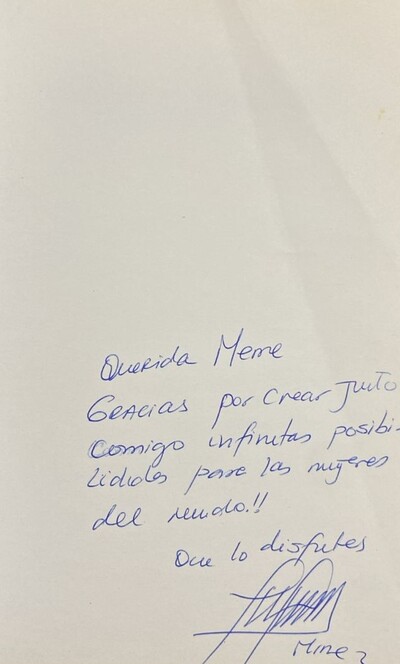 Querida Meme
Gracias por crear junto
comigo infinitas posibi-
lidades para las mujeres
del mundo!!
Que lo disfutes